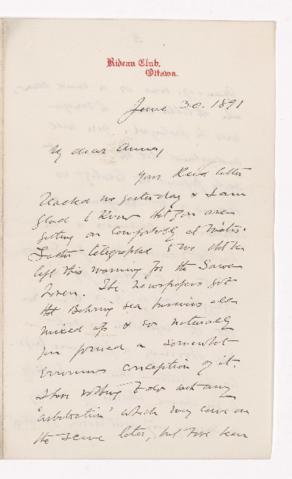 Rideau Club,
Ottawa.
June 30. 1891
My dear Anna,
Your kind letter
reached me yesterday & I am
glad to know that you are
getting on comfortably at Métis.
Father telegraphed to me that he
left this morning for the same
haven. The newspapers got
that Behring sea business all
mixed up & so naturally
you formed a somewhat
erroneous conception of it.
I have nothing to do with any
"arbitration" which may come on
the scene later, but I've been